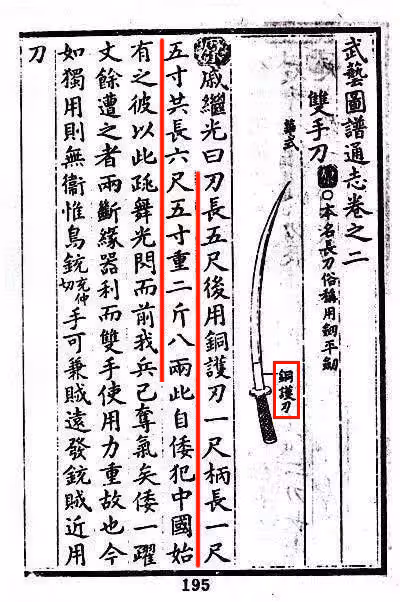 武藝圖譜通志卷之二
雙手刀
○本名長刀俗稱用劒平劒
華式
銅護刃
戚繼光曰刀長五尺後用銅護刃一尺柄長一尺
五寸共長六尺五寸重二斤八兩此自倭犯中國始
有之彼以此跳舞光閃而前我兵已奪氣矣倭一躍
丈餘遭之者兩斷緣器利而雙手使用力重故也今
如獨用則無衞惟鳥銃充仲切手可兼賊遠發銃賊近用
刀
195